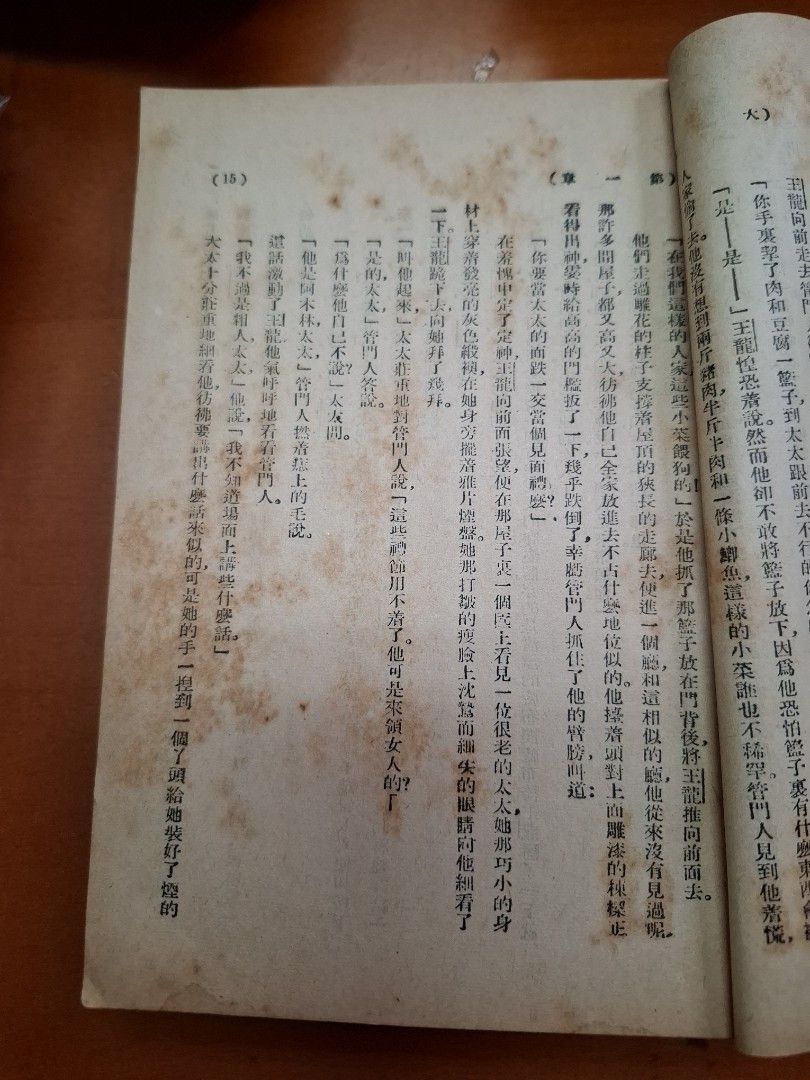 大）
王龍向前走去管門
「你手裏挈了肉和豆腐一籃子，到太太跟前去不行的
「是——是——」王龍惶恐着說。然而他卻不敢將籃子放下，因爲他恐怕籃子裏有什麼東西會被
人家偷了去。他沒有想到兩斤豬肉，半斤牛肉和一條小鯽魚，這樣的小菜誰也不稀罕。管門人見到他着慌，
（第一章）
（15）
「在我們這樣的人家，這些小菜餵狗的」於是他抓了那籃子放在門背後，將王龍推向前面去。
他們走過雕花的柱子支撐着屋頂的狹長的走廊去，便進一個廳，和這相似的廳，他從來沒有見過呢。
那許多間屋子都又高又大，彷彿他自己全家放進去不占什麼地位似的。他擡着頭對上面雕漆的棟樑正
看得出神，霎時給高高的門檻扳了一下，幾乎跌倒了，幸虧管門人抓住了他的臂膀，叫道：
「你要當太太的面跌一交當個見面禮麼？」
在羞愧中定了定神，王龍向前面張望，便在那屋子裏一個匟上看見一位很老的太太，她那巧小的身
材上穿着發亮的灰色緞襖，在她身旁擺着鴉片煙盤。她那打皺的瘦臉上沈鷙而細尖的眼睛向他細看了
一下。王龍跪下去，向她拜了幾拜。
「叫他起來」太太莊重地對管門人說，「這些禮節用不着了。他可是來領女人的？」
「是的，太太，」管門人答說。
「爲什麼他自己不說？」太太問。
「他是阿木林，太太，」管門人撫着痣上的毛說。
這話激動了王龍，他氣呼呼地看看管門人。
「我不過是粗人，太太」他說，「我不知道場面上講些什麼話。」
太太十分莊重地細看他，彷彿要講出什麼話來似的，可是她的手一捏到一個丫頭給她裝好了煙的